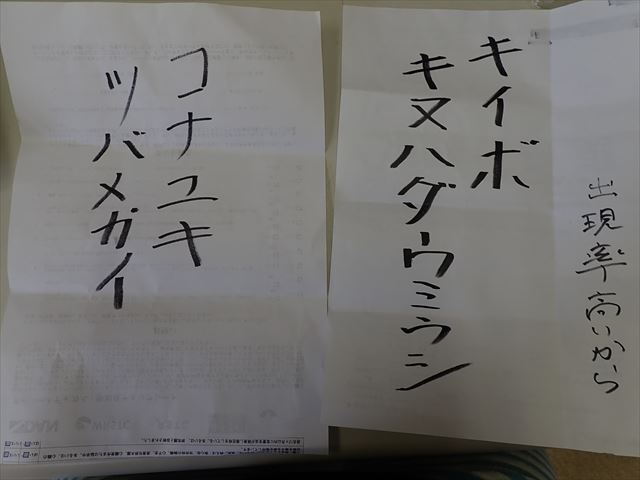 出現率高いから
キイボ
キヌハダウミウシ
コナユキ
ツバメガイ